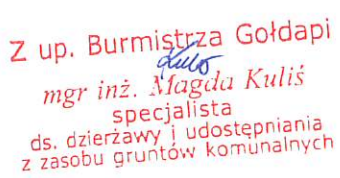 Z up. Burmistrza Gołdapi
mgr inż. Magda Kuliś
specjalista
ds. dzierżawy i udostępniania
z zasobu gruntów komunalnych